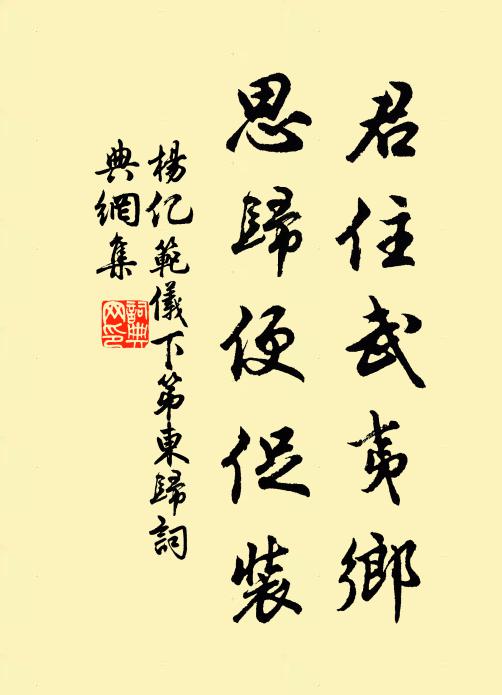 君住武夷鄉
思歸便促裝
楊亿範儀下第東歸詞
典網集
詞典
网印